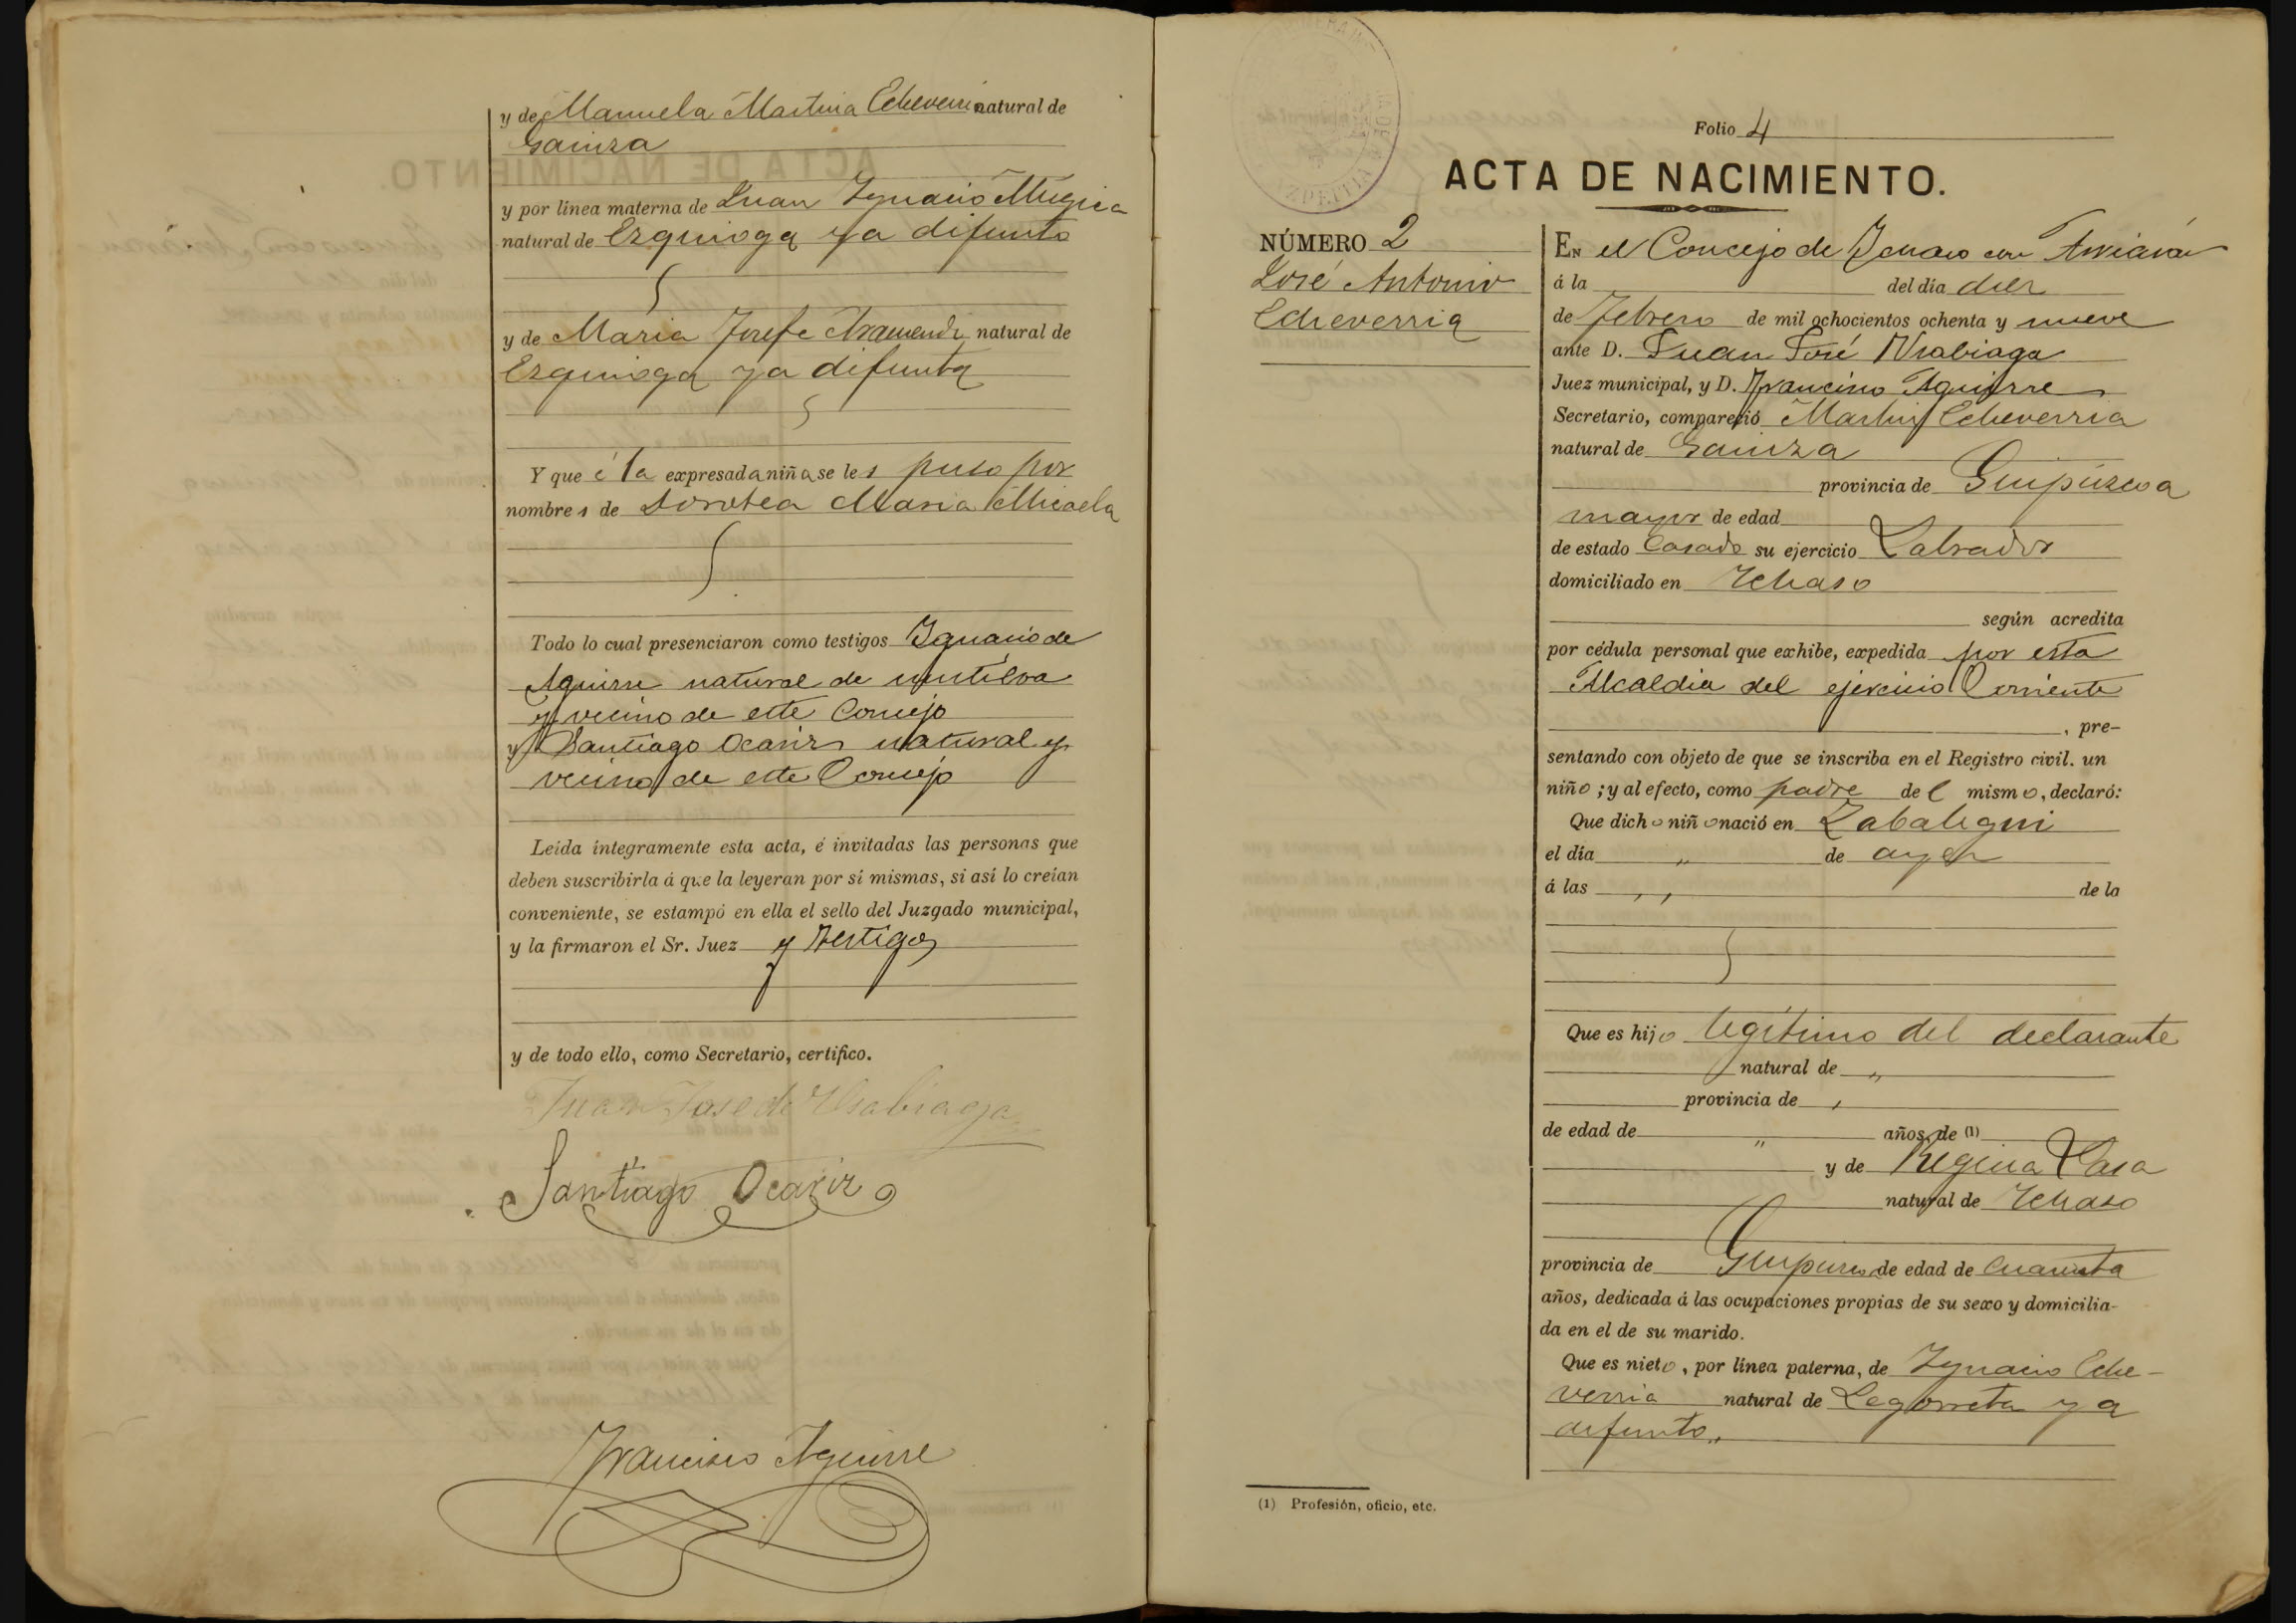 y de Manuela Martina Echeverria natural de
Gainza
y por línea materna de Juan Ygnacio Mugica
natural de Ezquioga ya difunto
y de Maria Josefa Aramendi natural de
Ezquioga ya difunta
Y que á la expresada niña se les puso por
nombres de Dorotea Maria Micaela
Todo lo cual presenciaron como testigos Ygnacio de
Aguirre natural de mutiloa
y vecino de este Concejo
y Santiago Ocariz natural y
vecino de este Concejo
Leída íntegramente esta acta, é invitadas las personas que
deben suscribirla á que la leyeran por sí mismas, si así lo creían
conveniente, se estampó en ella el sello del Juzgado municipal,
y la firmaron el Sr. Juez y Testigos
y de todo ello, como Secretario, certifico.
Juan José de Usabiaga
Santiago Ocariz
Francisco Aguirre
Folio 4
ACTA DE NACIMIENTO.
NÚMERO 2
José Antonio
Echeverria
EN el Concejo de Ychaso con Arriarán
á la del día diez
de Febrero de mil ochocientos ochenta y nueve
ante D. Juan José Usabiaga
Juez municipal, y D. Francisco Aguirre
Secretario, compareció Martin Echeverria
natural de Gainza
provincia de Guipúzcoa
mayor de edad
de estado Casado su ejercicio Labrador
domiciliado en Ychaso
según acredita
por cédula personal que exhibe, expedida por esta
Alcaldia del ejercicio Corriente
, pre-
sentando con objeto de que se inscriba en el Registro civil. un
niño ; y al efecto, como padre del mismo, declaró:
Que dicho niño nació en Zabalegui
el día " de ayer
á las " de la
Que es hijo legítimo del declarante
natural de "
provincia de "
de edad de " años, de (1)
y de Regina Plaza
natural de Ychaso
provincia de Guipuzcoa de edad de Cuarenta
años, dedicada á las ocupaciones propias de su sexo y domicilia-
da en el de su marido.
Que es nieto, por línea paterna, de Ygnacio Eche-
verria natural de Legorreta ya
difunto
(1) Profesión, oficio, etc.